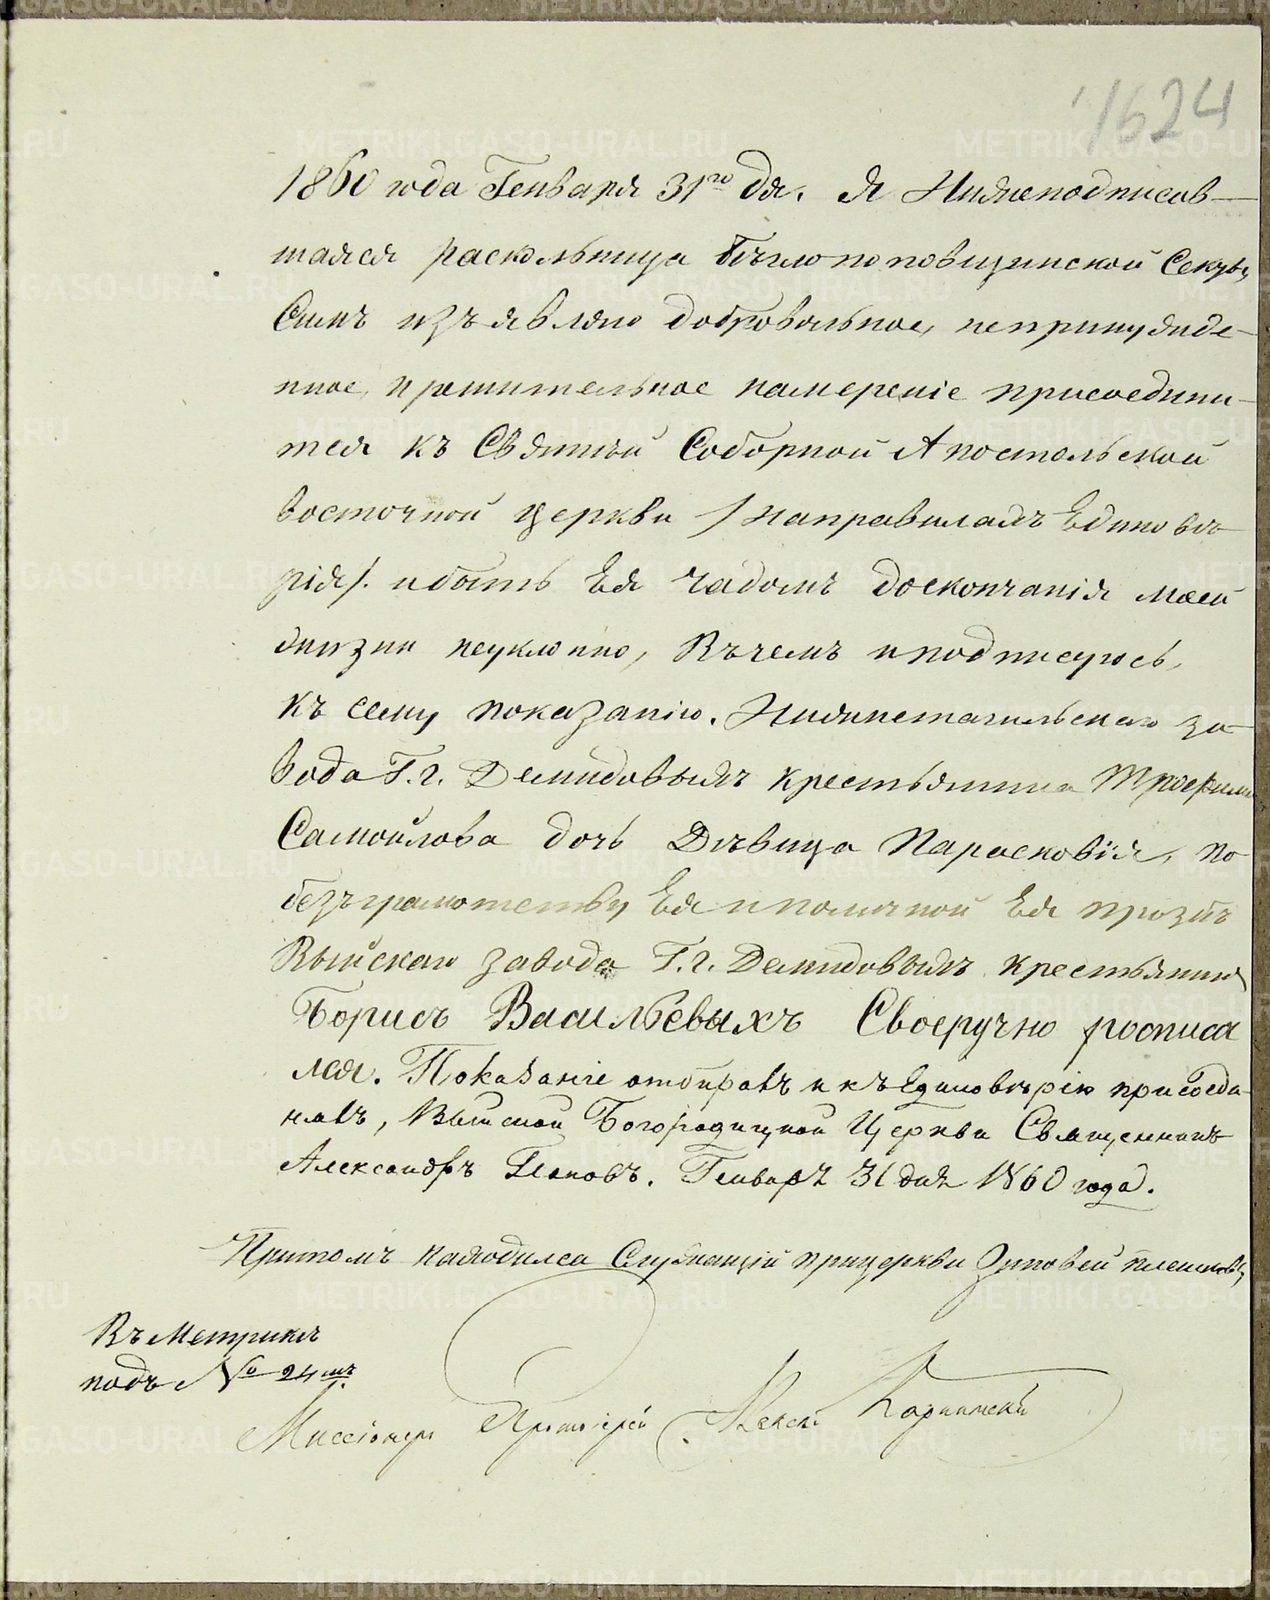 1624
1860 года Генваря 31го дня. Я Нижеподписав-
шаяся раскольница беглопоповщинской Секты,
Симъ изъявляю добровольное, непринужде-
нное, и решительное намереніе присоедини-
тся къ Святой Соборной Апостольской
восточной церкви /на правилахъ Единовѣ-
рія/. и быть Ея чадомъ до скончанія моей
жизни неуклонно, Въ чемъ и подписуюсь,
къ сему показанію. Нижнетагильскаго за-
вода Г.г. Демидовыхъ крестьянина Трофима
Самойлова дочь Дѣвица Парасковія, по
безъграмотству Ея и по личной Ея прозбѣ
Выйскаго завода Г.г. Демидовыхъ крестьянинъ
Борисъ Васильевыхъ Своеручно росписа
лся. Показаніе отобравъ и къ Единовѣрію присоеди-
нивъ, Выйской Богородицкой Церкви Священникъ
Александръ Поповъ. Генваря 31 дня 1860 года.
Притомъ находился Служащій при церкви Зиновей
Въ Метрикѣ
подъ № 24мъ
Миссіонеръ Протоіерей